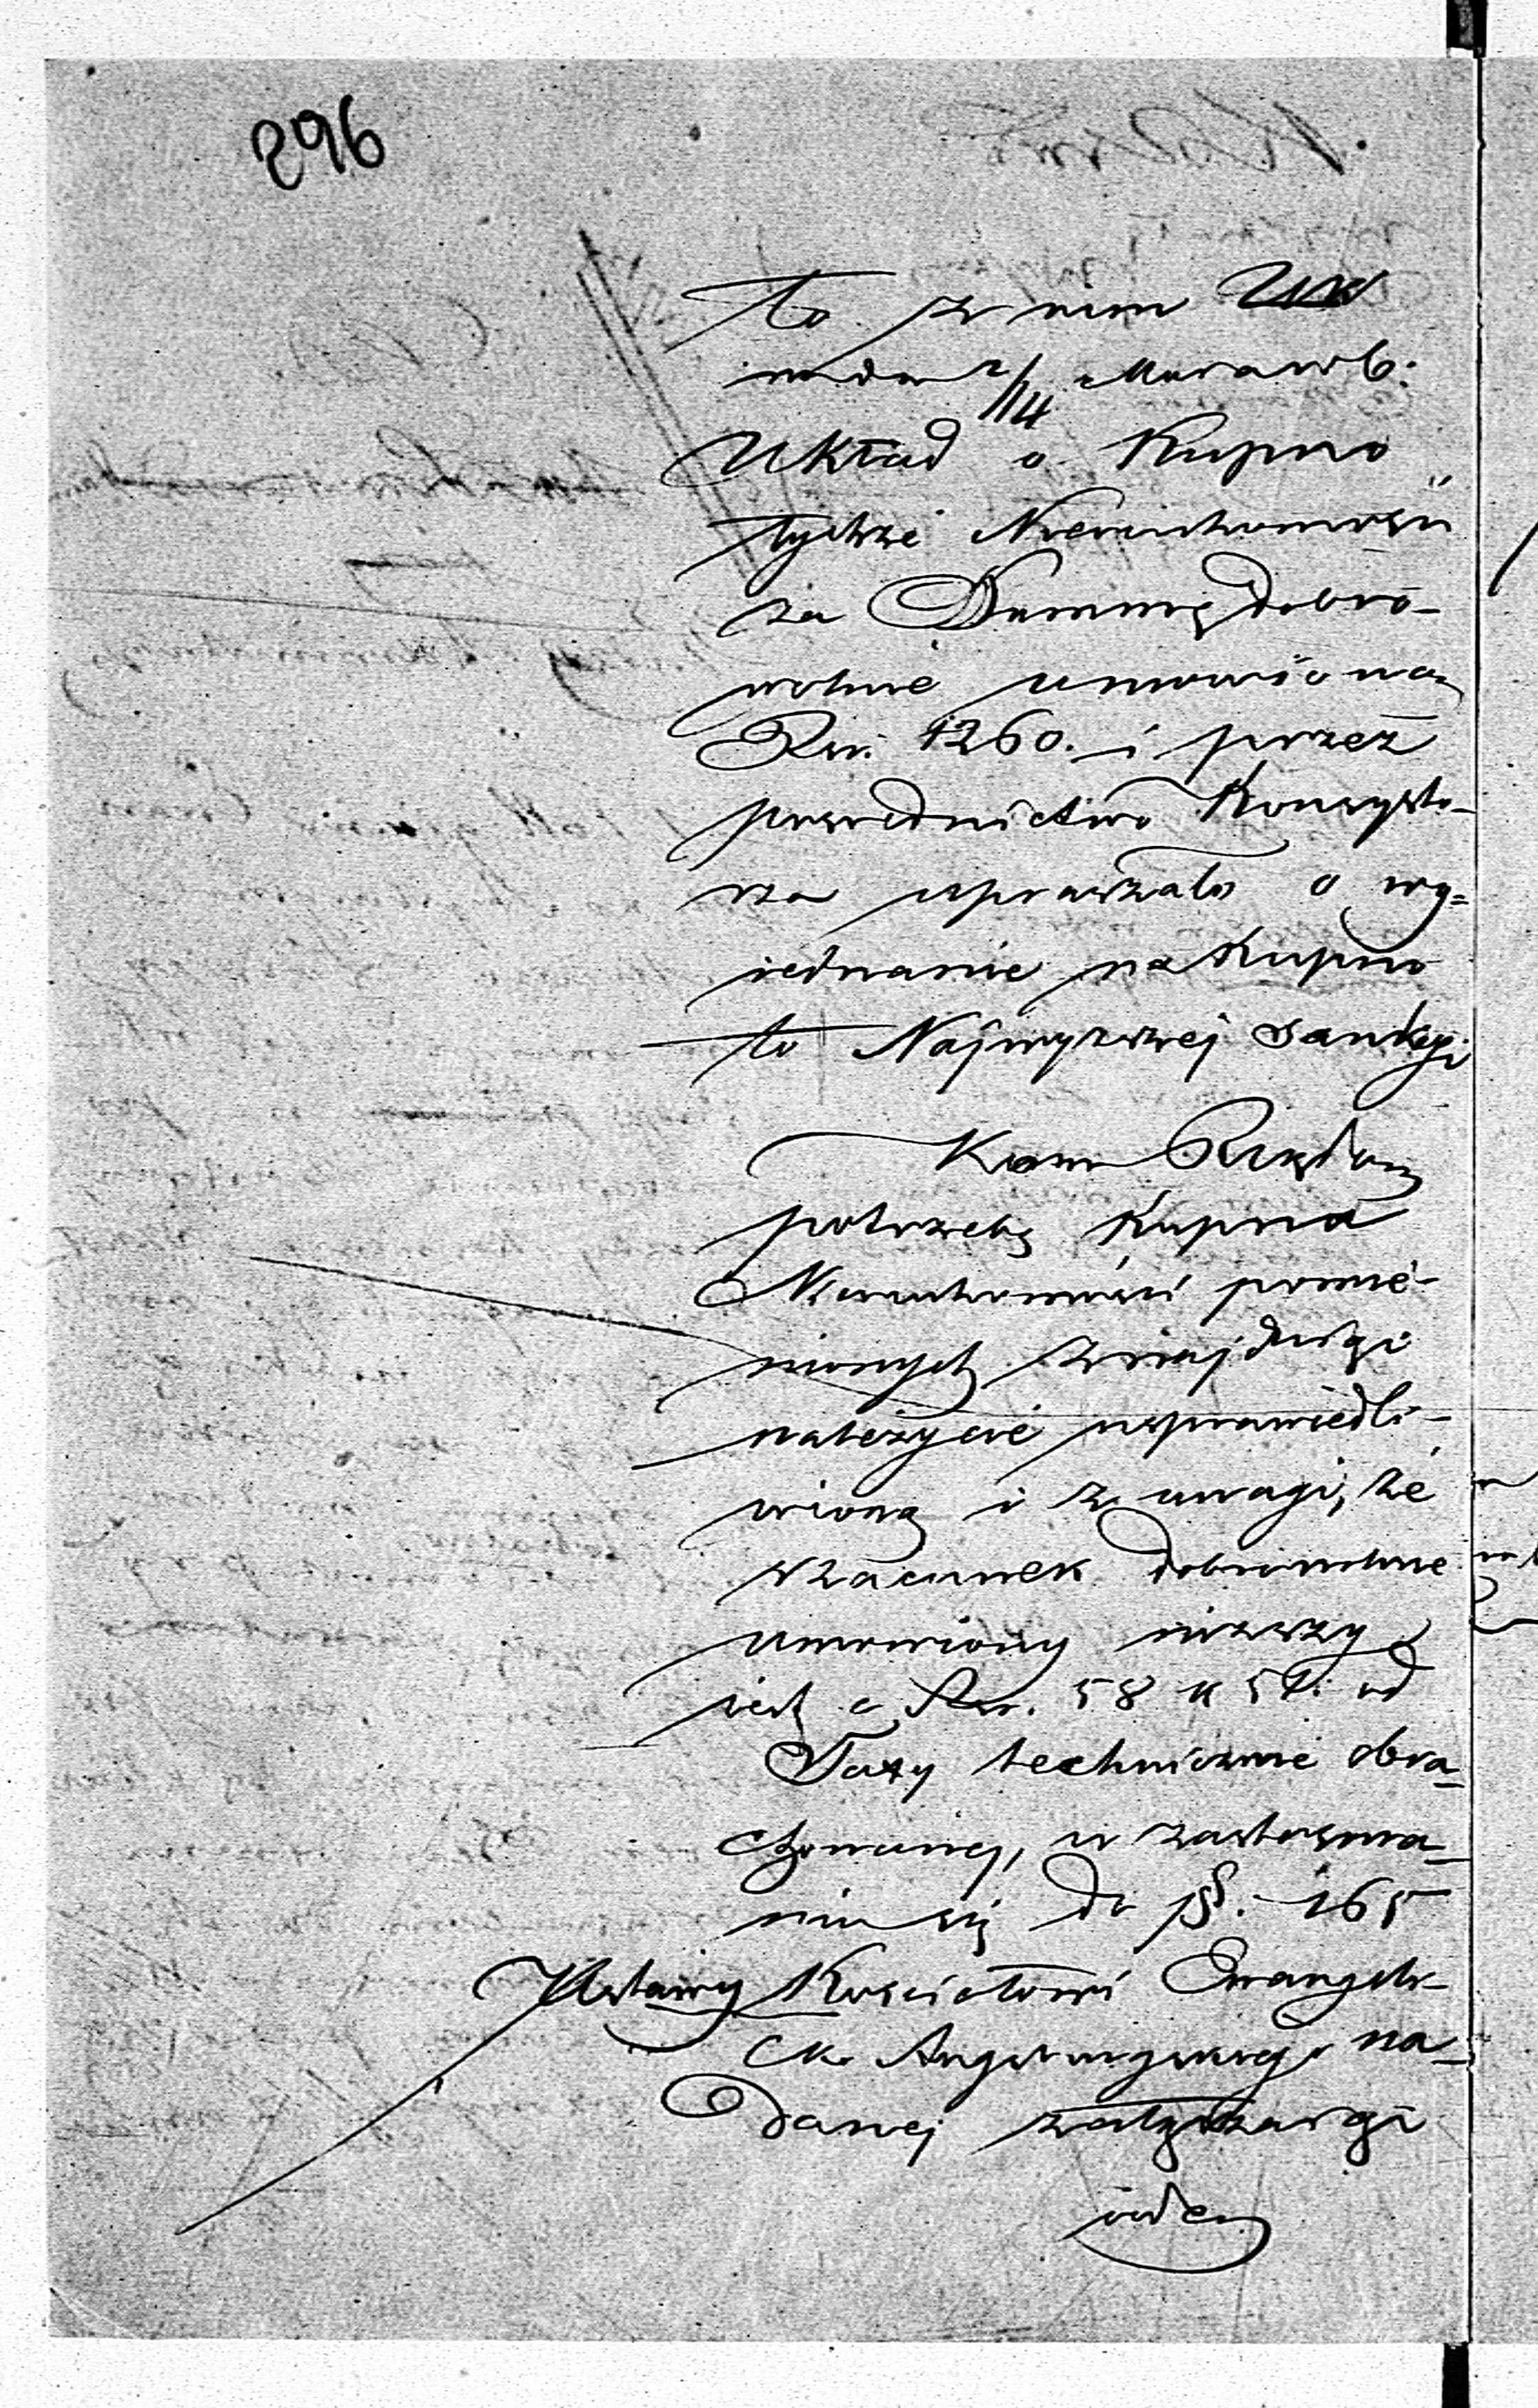 896
to z nim
w dniu 2/14 Marca r. b.
Układ o Kupno
tychże Nieruchomości
za Summę dobro-
wolnie umowioną
Rsr. 1260. i przez
pośrednictwo Konsysto-
rza upraszało o wy=
jednanie na Kupno
to Najwyższej Sankcyi
Kom Rządowa
potrzebę Kupna
Nieruchomości pomie-
nionych znajduiąc
należycie usprawiedli-
wioną i z uwagi, że
szacunek dobrowolnie
umowiony niższy
jest o Rsr. 58 k 51. od
Taxy technicznie obra-
chowanej, w zastosowa-
niu się do §. 165
Ustawy Kościołowi Ewangelic-
ko Augsburgskiego na-
danej załączając